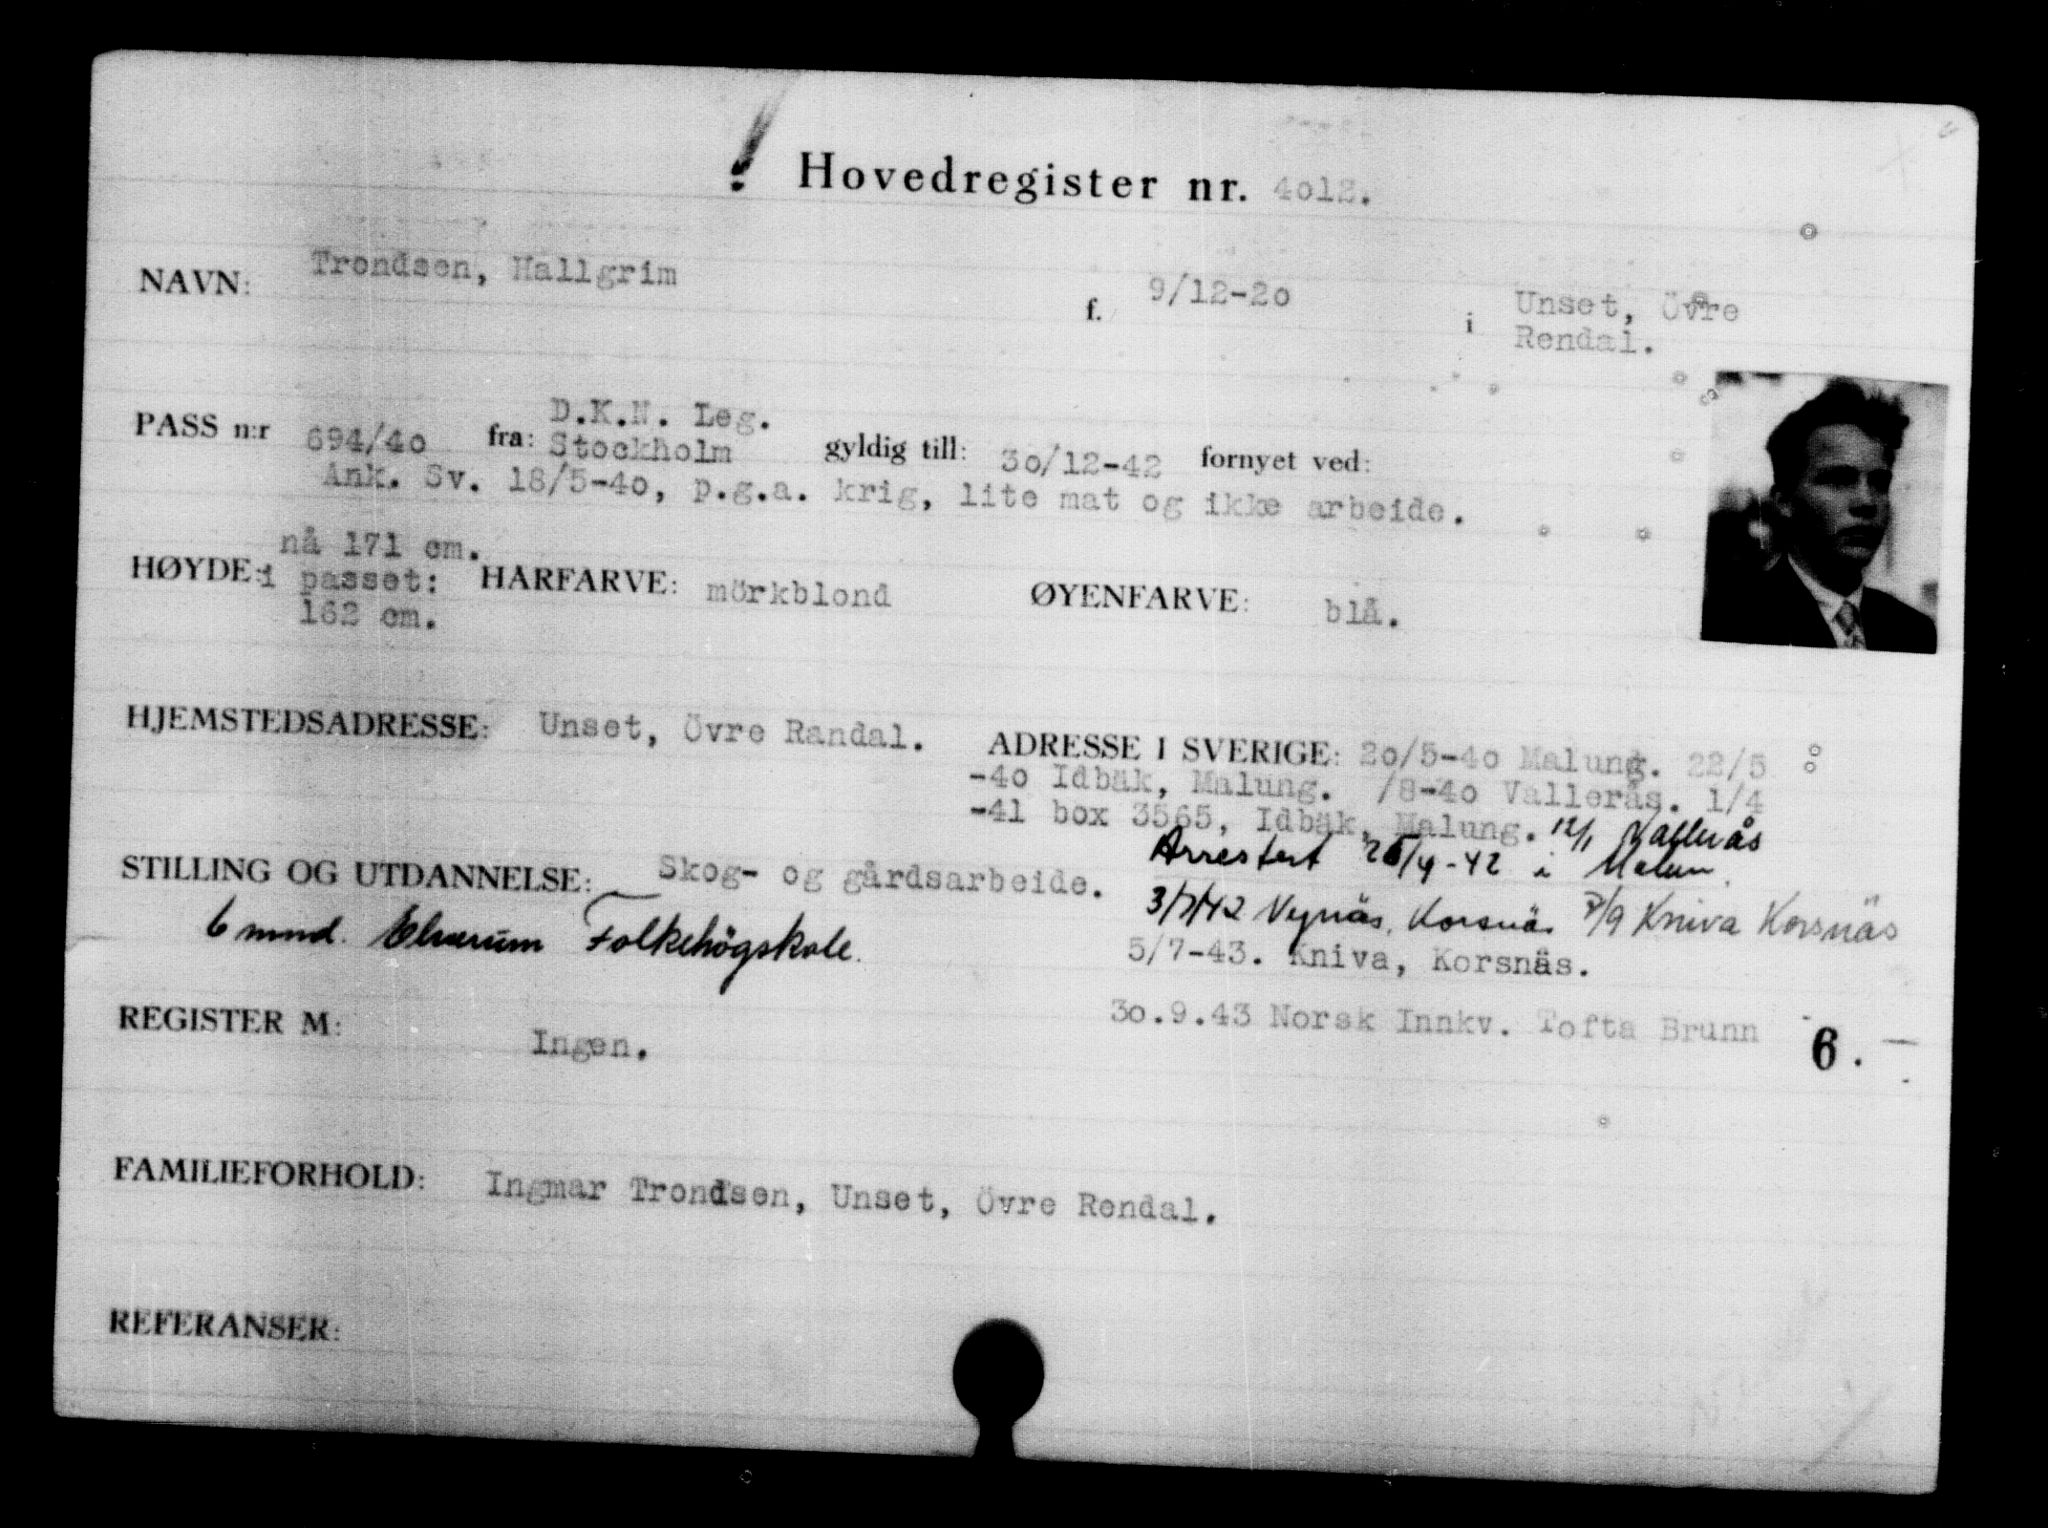 ! Hovedregister nr. 4012.
NAVN: Trondsen, Hallgrim f. 9/12-20 i Unset, Övre
Rendal.
D.K.N. Leg.
PASS n:r 694/40 fra: Stockholm gyldig till: 30/12-42 fornyet ved:
Ank. Sv. 18/5-40, p.g.a. krig, lite mat og ikke arbeide.
nå 171 cm.
HØYDE: i passet: HARFARVE: mörkblond ØYENFARVE: blå.
162 cm.
HJEMSTEDSADRESSE: Unset, Övre Randal.
ADRESSE I SVERIGE: 20/5-40 Malung. 22/5
-40 Idbäk, Malung. /8-40 Vallerås. 1/4
-41 box 3565, Idbäk, Malung. 12/1 Vallerås
Arrestert /4-42 i
3/7/42 Korsnäs /9 Kniva Korsnäs
5/7-43. Kniva, Korsnäs.
30.9.43 Norsk Innkv. Tofta Brunn 6.
STILLING OG UTDANNELSE: Skog- og gårdsarbeide.
6 mnd. Elverum Folkehögskole.
REGISTER M: Ingen.
FAMILIEFORHOLD: Ingmar Trondsen, Unset, Övre Rendal.
REFERANSER: